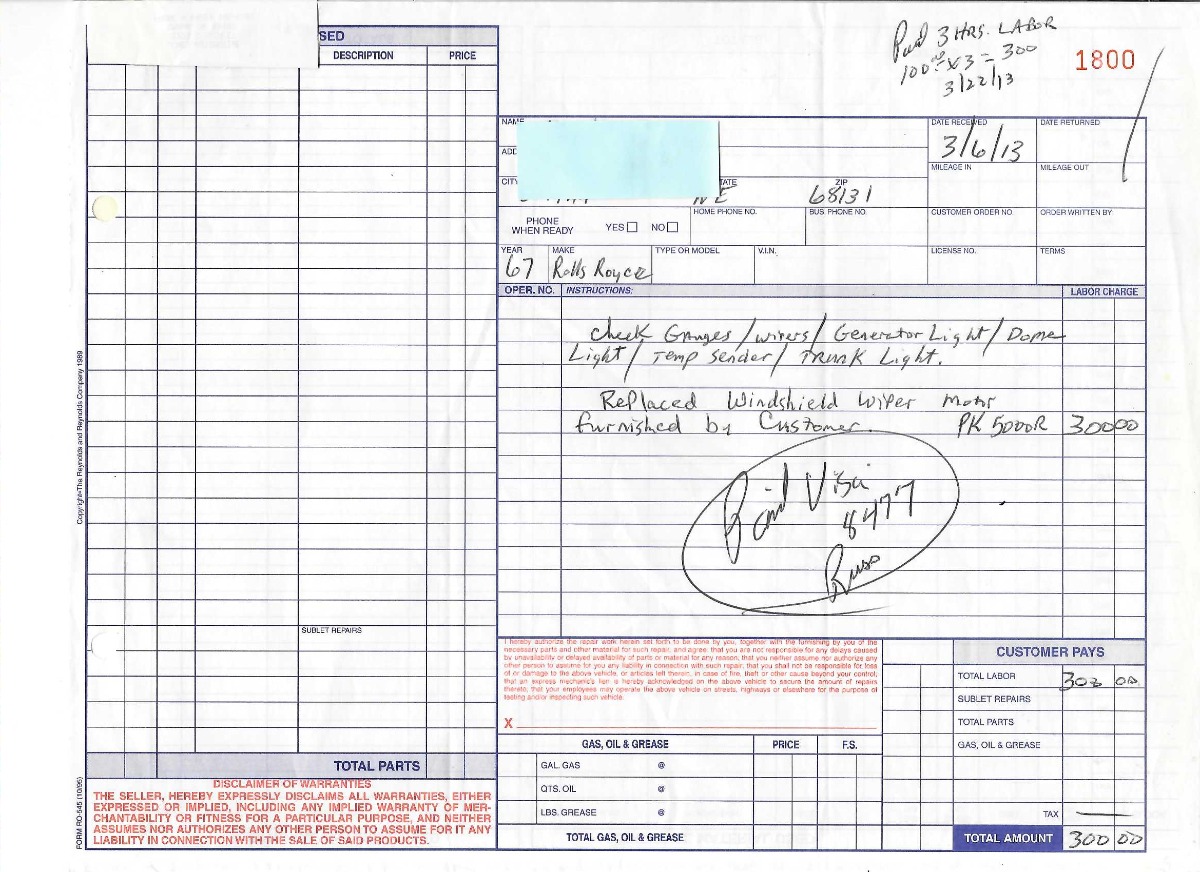 SED
DESCRIPTION PRICE
Paid 3 HRS. LABOR
100.00 x3 = 300
3/22/13
1800
NAME
DATE RECEIVED
3/6/13
DATE RETURNED
ADD
MILEAGE IN MILEAGE OUT
CITY STATE ZIP
NE 68131
PHONE WHEN READY YES NO
HOME PHONE NO. BUS. PHONE NO. CUSTOMER ORDER NO. ORDER WRITTEN BY
YEAR MAKE TYPE OR MODEL V.I.N. LICENSE NO. TERMS
67 Rolls Royce
OPER. NO. INSTRUCTIONS: LABOR CHARGE
Check Gauges / wipers / Generator Light / Dome
Light / Temp Sender / Trunk Light.
Replaced Windshield Wiper Motor
furnished by Customer. PK 5000R 300 00
Paid Visa
8477
Russ
SUBLET REPAIRS
TOTAL PARTS
DISCLAIMER OF WARRANTIES
THE SELLER, HEREBY EXPRESSLY DISCLAIMS ALL WARRANTIES, EITHER
EXPRESSED OR IMPLIED, INCLUDING ANY IMPLIED WARRANTY OF MER-
CHANTABILITY OR FITNESS FOR A PARTICULAR PURPOSE, AND NEITHER
ASSUMES NOR AUTHORIZES ANY OTHER PERSON TO ASSUME FOR IT ANY
LIABILITY IN CONNECTION WITH THE SALE OF SAID PRODUCTS.
Copyright-The Reynolds and Reynolds Company 1989
FORM RO-545 (10/95)
I hereby authorize the repair work herein set forth to be done by you, together with the furnishing by you of the
necessary parts and other material for such repair, and agree: that you are not responsible for any delays caused
by unavailability or delayed availability of parts or material for any reason, that you neither assume nor authorize any
other person to assume for you any liability in connection with such repair; that you shall not be responsible for loss
of or damage to the above vehicle, or articles left therein, in case of fire, theft or other cause beyond your control;
that an express mechanic's lien is hereby acknowledged on the above vehicle to secure the amount of repairs
thereto, that your employees may operate the above vehicle on streets, highways or elsewhere for the purpose of
testing and/or inspecting such vehicle.
X
GAS, OIL & GREASE PRICE F.S.
GAL. GAS @
QTS. OIL @
LBS. GREASE @
TOTAL GAS, OIL & GREASE
CUSTOMER PAYS
TOTAL LABOR 300 00
SUBLET REPAIRS
TOTAL PARTS
GAS, OIL & GREASE
TAX
TOTAL AMOUNT 300 00